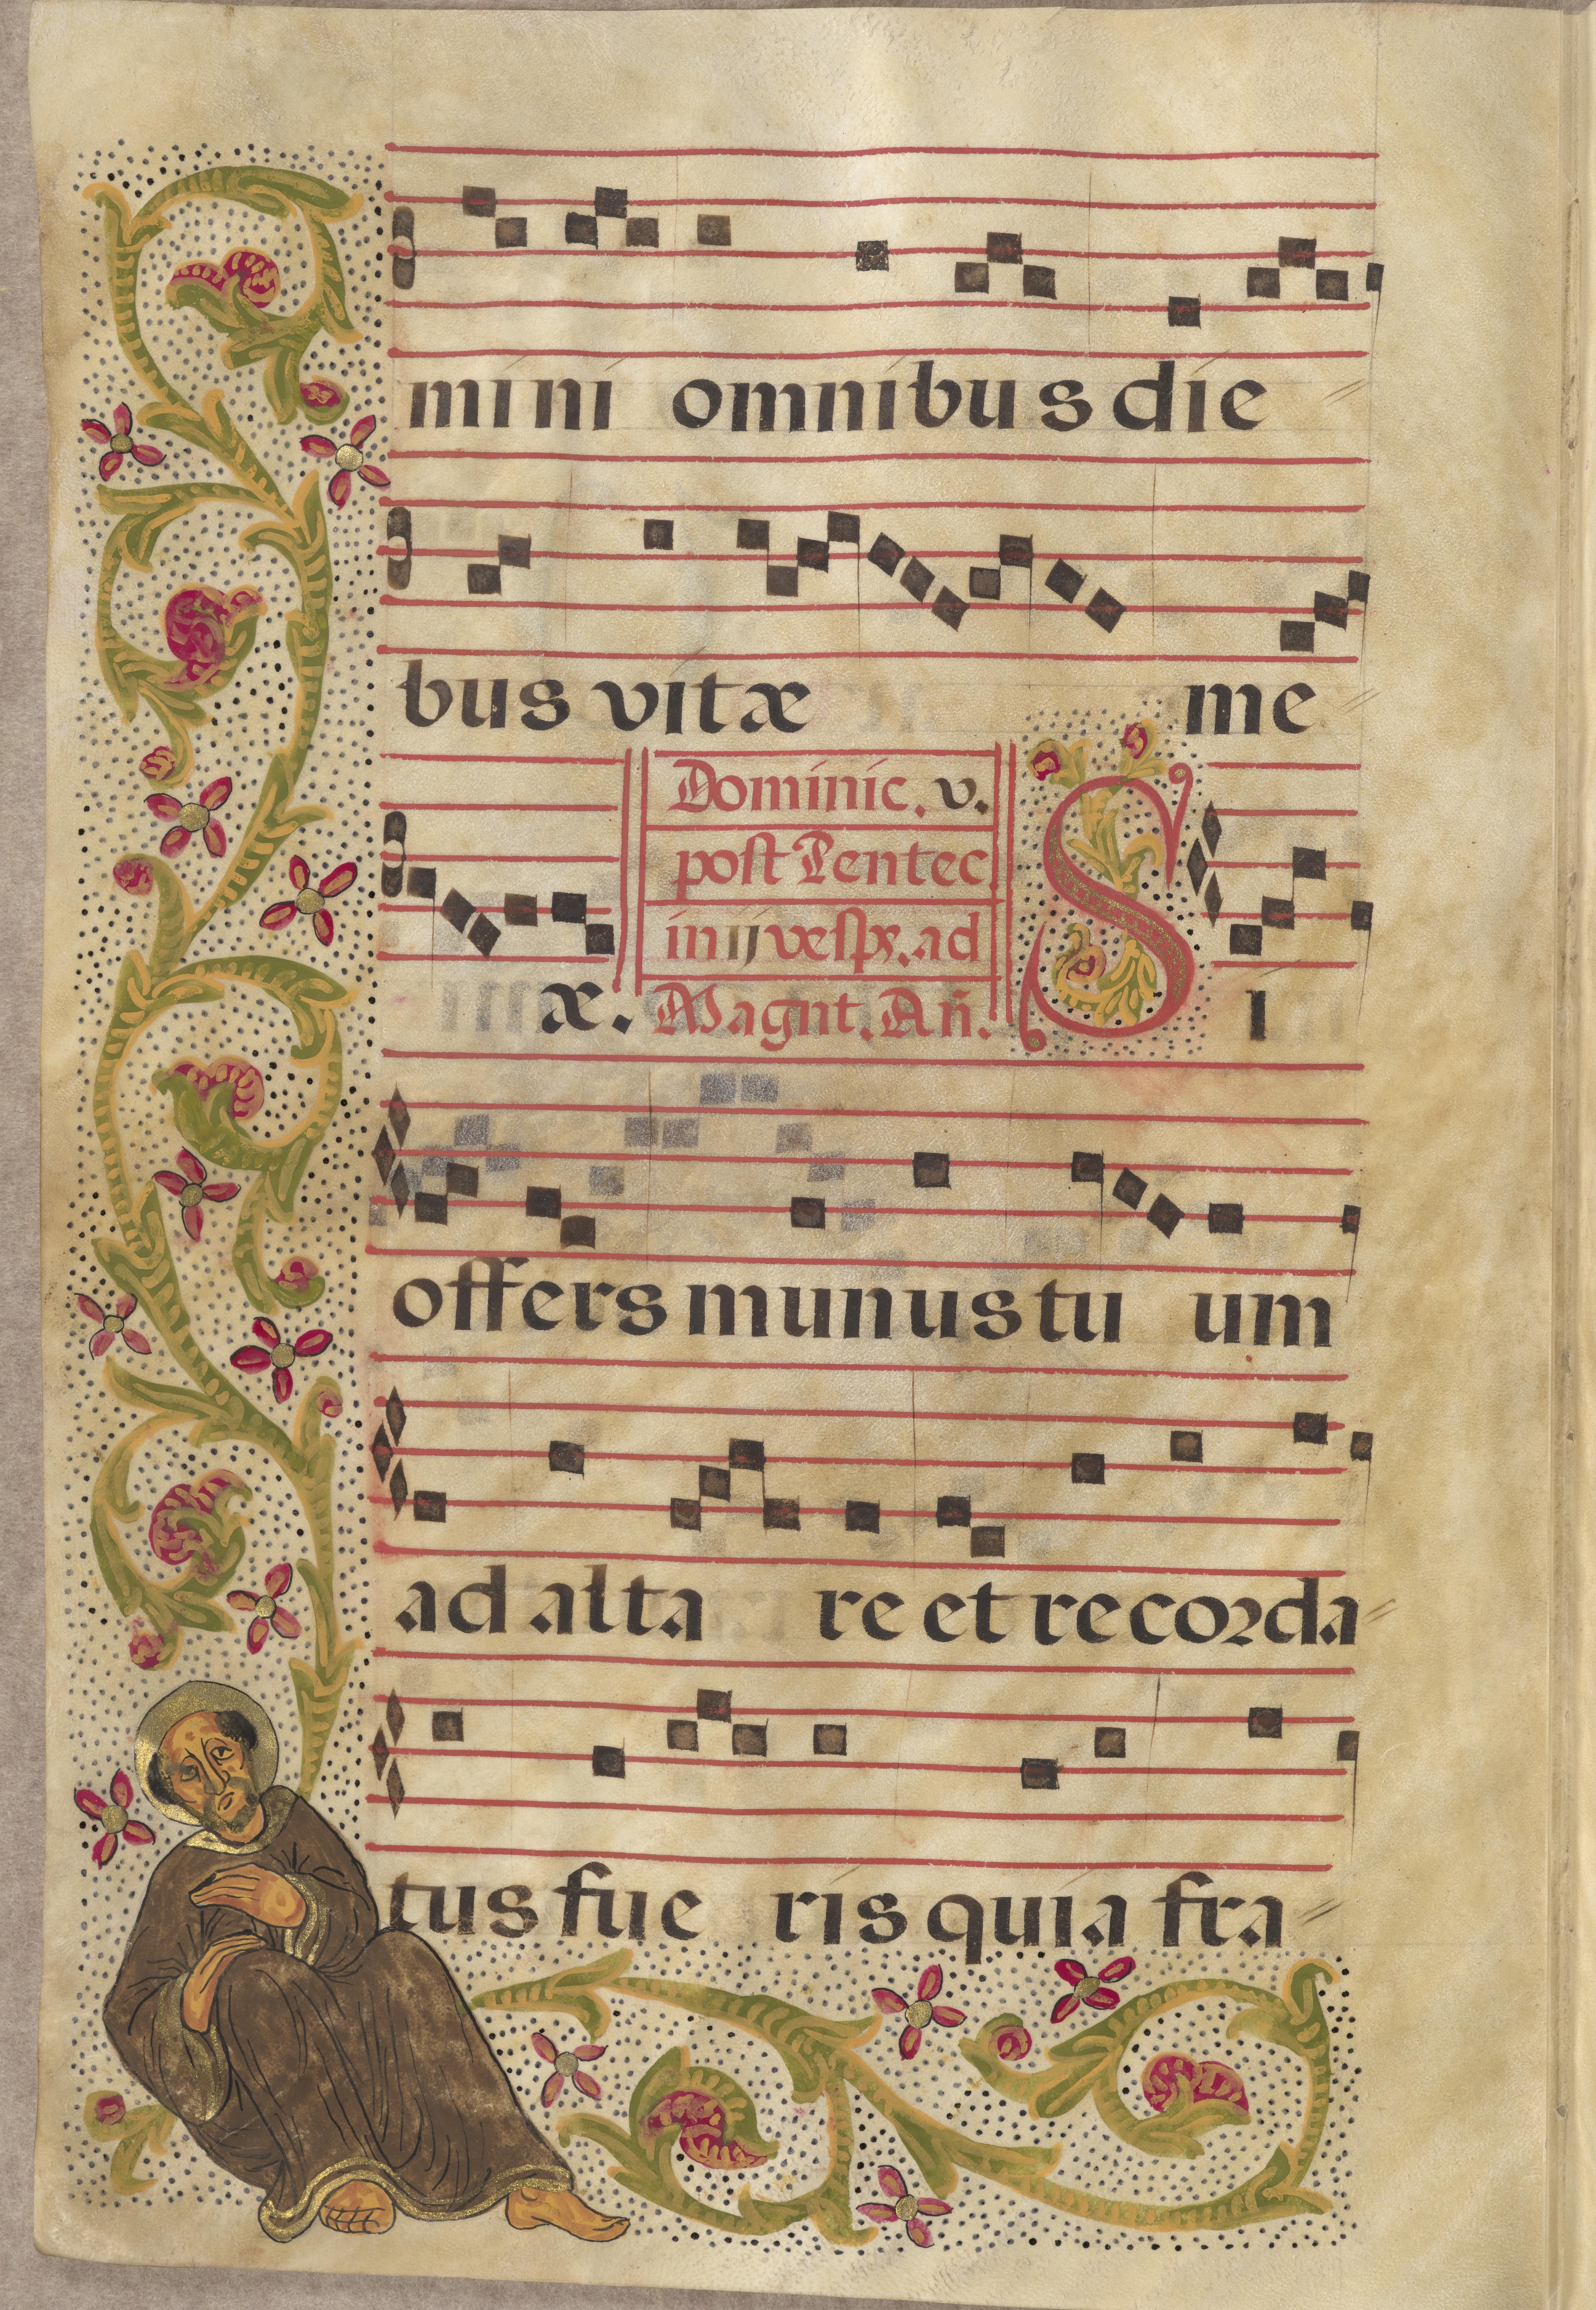 mini omnibus die
bus vitæ me
Dominic. v.
post Pentec.
in ij vesp̃. ad
æ. Magnt. Añ. SI
offers munus tu um
ad alta re et recorda
tus fue ris quia fra